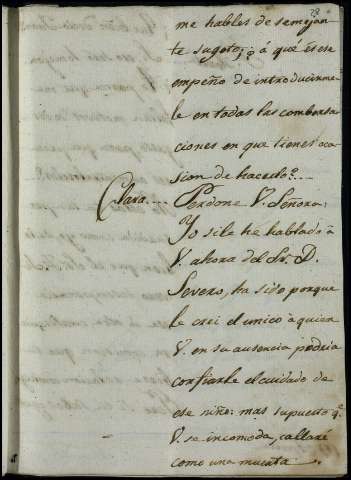 28
me hables de semejan
te sugeto; ¿ á qué és ese
empeño de introducirme
le en todas las combersa
ciones en que tienes oca
sion de hacerlo?....
Clara.... Perdone V. Señora:
Yo si le he hablado à
V. ahora del Sr. D.
Severo, ha sido porque
le crei el unico à quien
V. en su ausencia podria
confiarle el cuidado de
ese niño: mas supuesto q.e
V. se incomoda, callaré
como una muerta.